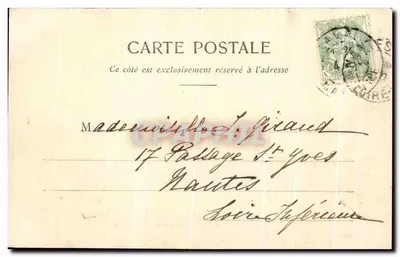 CARTE POSTALE
Ce côté est exclusivement réservé à l'adresse
Mademoiselle J. Giraud
17 Passage St Yves
Nantes
Loire Inférieure